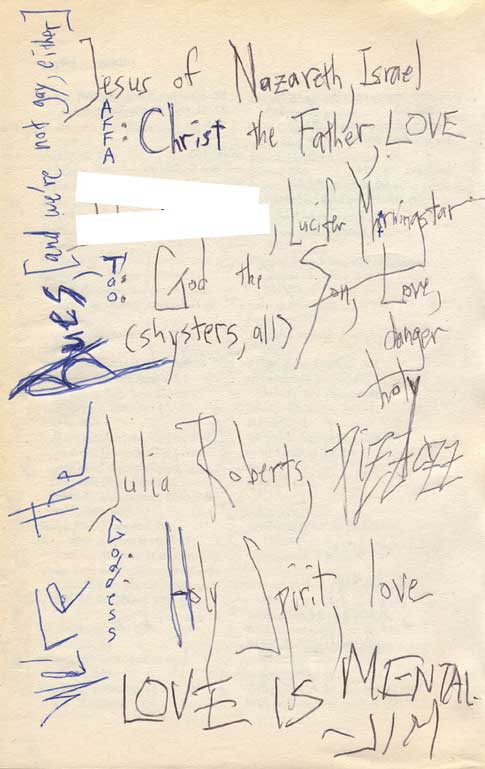 We're the [and we're not gay, either]
Jesus of Nazareth, Israel
AFFA: Christ the Father, LOVE
, Lucifer Morningstar
Tao: God the Son, Love,
(shysters, all) danger
holy
Julia Roberts, PIZZAZZ
Goddess Holy Spirit, love
LOVE IS MENTAL.
~JIM